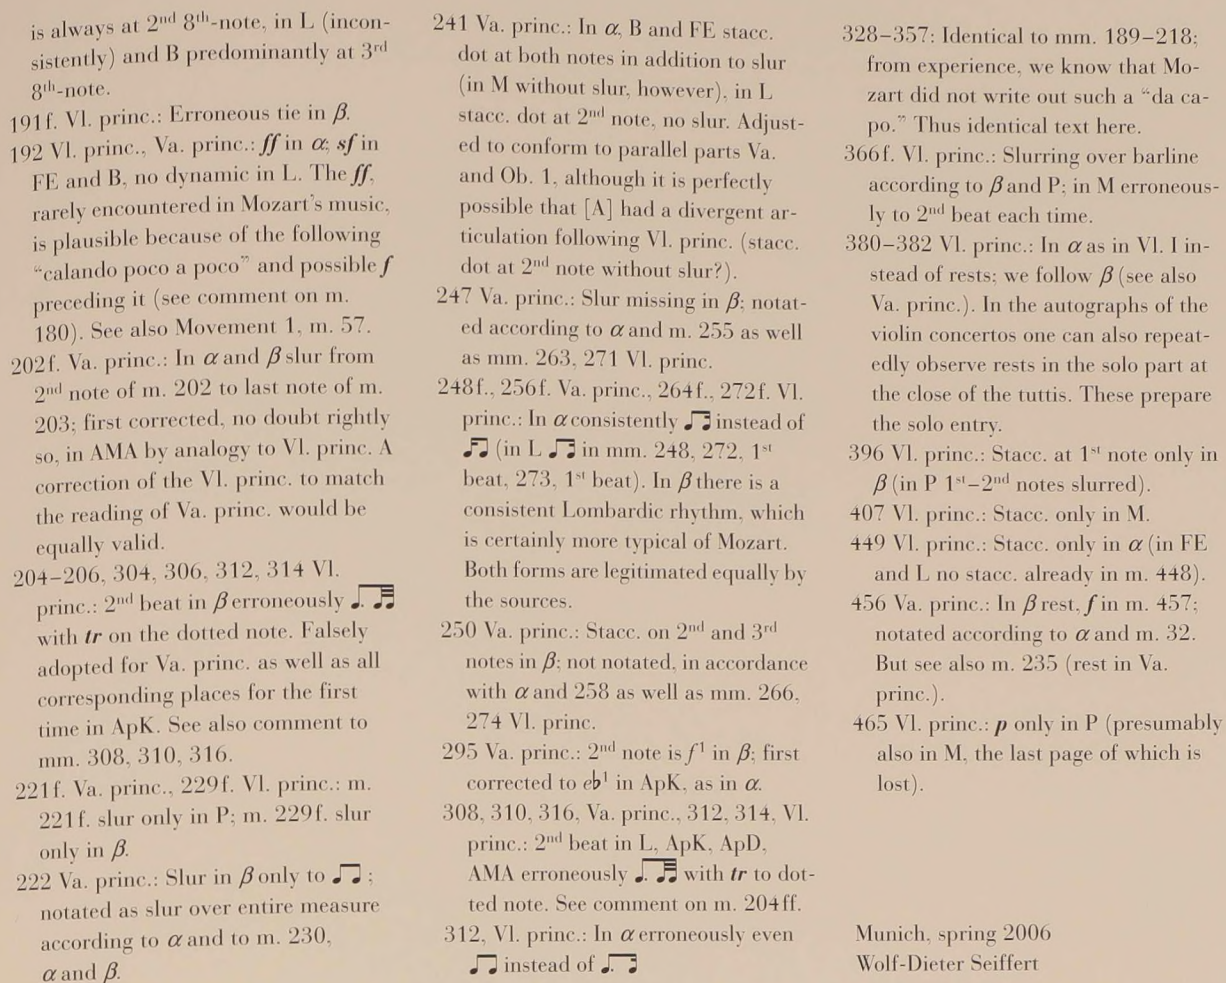 is always at 2nd 8th-note, in L (incon-
sistently) and B predominantly at 3rd
8th-note.
191f. Vl. princ.: Erroneous tie in β.
192 Vl. princ., Va. princ.: ff in α; sf in
FE and B, no dynamic in L. The ff,
rarely encountered in Mozart's music,
is plausible because of the following
"calando poco a poco" and possible f
preceding it (see comment on m.
180). See also Movement 1, m. 57.
202f. Va. princ.: In α and β slur from
2nd note of m. 202 to last note of m.
203; first corrected, no doubt rightly
so, in AMA by analogy to Vl. princ. A
correction of the Vl. princ. to match
the reading of Va. princ. would be
equally valid.
204–206, 304, 306, 312, 314 Vl.
princ.: 2nd beat in β erroneously
with tr on the dotted note. Falsely
adopted for Va. princ. as well as all
corresponding places for the first
time in ApK. See also comment to
mm. 308, 310, 316.
221f. Va. princ., 229f. Vl. princ.: m.
221f. slur only in P; m. 229f. slur
only in β.
222 Va. princ.: Slur in β only to ♫;
notated as slur over entire measure
according to α and to m. 230,
α and β.
241 Va. princ.: In α, B and FE stacc.
dot at both notes in addition to slur
(in M without slur, however), in L
stacc. dot at 2nd note, no slur. Adjust-
ed to conform to parallel parts Va.
and Ob. 1, although it is perfectly
possible that [A] had a divergent ar-
ticulation following Vl. princ. (stacc.
dot at 2nd note without slur?).
247 Va. princ.: Slur missing in β; notat-
ed according to α and m. 255 as well
as mm. 263, 271 Vl. princ.
248f., 256f. Va. princ., 264f., 272f. Vl.
princ.: In α consistently instead of
(in L in mm. 248, 272, 1st
beat, 273, 1st beat). In β there is a
consistent Lombardic rhythm, which
is certainly more typical of Mozart.
Both forms are legitimated equally by
the sources.
250 Va. princ.: Stacc. on 2nd and 3rd
notes in β; not notated, in accordance
with α and 258 as well as mm. 266,
274 Vl. princ.
295 Va. princ.: 2nd note is f1 in β; first
corrected to e♭1 in ApK, as in α.
308, 310, 316, Va. princ., 312, 314, Vl.
princ.: 2nd beat in L, ApK, ApD,
AMA erroneously with tr to dot-
ted note. See comment on m. 204ff.
312, Vl. princ.: In α erroneously even
♫ instead of
328–357: Identical to mm. 189–218;
from experience, we know that Mo-
zart did not write out such a "da ca-
po." Thus identical text here.
366f. Vl. princ.: Slurring over barline
according to β and P; in M erroneous-
ly to 2nd beat each time.
380–382 Vl. princ.: In α as in Vl. I in-
stead of rests; we follow β (see also
Va. princ.). In the autographs of the
violin concertos one can also repeat-
edly observe rests in the solo part at
the close of the tuttis. These prepare
the solo entry.
396 Vl. princ.: Stacc. at 1st note only in
β (in P 1st–2nd notes slurred).
407 Vl. princ.: Stacc. only in M.
449 Vl. princ.: Stacc. only in α (in FE
and L no stacc. already in m. 448).
456 Va. princ.: In β rest, f in m. 457;
notated according to α and m. 32.
But see also m. 235 (rest in Va.
princ.).
465 Vl. princ.: p only in P (presumably
also in M, the last page of which is
lost).
Munich, spring 2006
Wolf-Dieter Seiffert